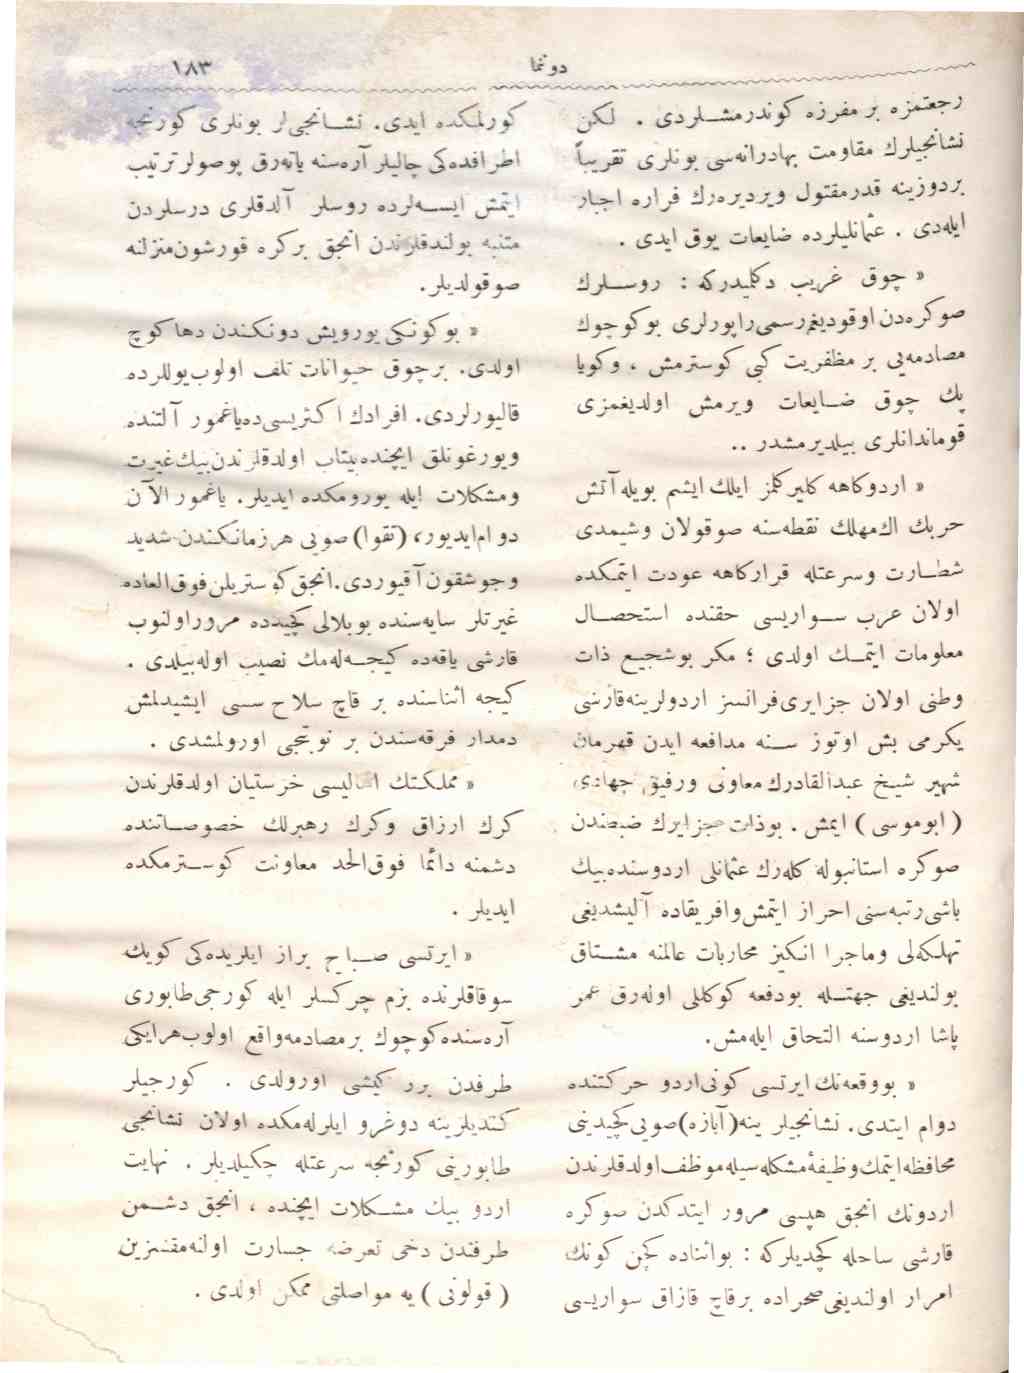 دوننما ١٨٣
رجعتمزه بر مفرزه كوندرمشــلردی . لكن
نشانجیلرك مقاومت بهادرانه‌سی بونلری تقریباً
بردوزینه قدرمقتول ویردیره‌رك فراره اجبار
ایله‌دی . عثمانلیلرده ضایعات یوق ایدی .
« چوق غریب دكلیدركه : روســلرك
صوكره‌دن اوقودیغم رسمی راپورلری بوكوچوك
مصادمه‌یی بر مظفریت كبی كوسترمش ، وكویا
پك چوق ضــایعات ویرمش اولدیغمزی
قوماندانلری بیلدیرمشدر ..
« اردوكاهه كلیركلمز ایلك ایشم بویله آتش
حربك اك مهلك نقطه‌سنه صوقولان وشیمدی
شطــارت وسرعتله قراركاهه عودت ایتمكده
اولان عرب ســواریسی حقنده استحصــال
معلومات ایتمــك اولدی ؛ مكر بوشجیــع ذات
وطنی اولان جزایری فرانسز اردولرینه قارشی
یكرمی بش اوتوز ســنه مدافعه ایدن قهرمان
شهیر شیخ عبدالقادرك معاونی ورفیق جهادی
( ابوموسی ) ایمش . بوذات جزایرك ضبطندن
صوكره استانبوله كله‌رك عثمانلی اردوسنده بیك
باشی رتبه‌سنی احراز ایتمش وافریقاده آلیشدیغی
تهلكه‌لی وماجرا انكیز محاربات عالمنه مشــتاق
بولندیغی جهتــله بودفعه كوكللی اوله‌رق عمر
پاشا اردوسنه التحاق ایله‌مش.
« بووقعه‌نك ایرتسی كونی اردو حركتنده
دوام ایتدی. نشانجیلر ینه (آبازه) صویی كچیدینی
محافظه ایتمك وظیفهٔ مشكله‌سیله موظف اولدقلرندن
اردونك انجق هپسی مرور ایتدكدن صوكره
قارشی ساحله كچدیلركه : بواثناده كچن كونك
امرار اولندیغی صحراده برقاچ قازاق سواریسی
كورلمكده ایدی. نشــانجیلر بونلری كورنجه
اطرافده‌كی چالیلر آره‌سنه یاته‌رق پوصولر ترتیب
ایتمش ایســه‌لرده روسلر آلدقلری درسلردن
متنبه بولندقلرندن انجق بركره قورشون منزلنه
صوقولدیلر.
« بوكونكی یورویش دونكندن دها كوچ
اولدی. برچوق حیوانات تلف اولوب یوللرده
قالیورلردی. افرادك اكثریسی ده یاغمور آلتنده
ویورغونلق ایچنده بیتاب اولدقلرندن بیك غیرت
ومشكلات ایله یورومكده ایدیلر. یاغمور الآن
دوام ایدیور، (تقوا) صویی هر زمانكندن شدید
وجوشقون آقیوردی. انجق كوستریلن فوق العاده
غیرتلر سایه‌سنده بوبلالی كچیدده مرور اولنوب
قارشی یاقه‌ده كیجــه‌له‌مك نصیب اوله‌بیلدی .
كیجه اثناسنده بر قاچ سلاح سسی ایشیدلمش
دمدار فرقه‌سندن بر نوبتجی اورولمشدی .
« مملكتك اهالیسی خرستیان اولدقلرندن
كرك ارزاق وكرك رهبرلك خصوصــاتنده
دشمنه دائما فوق الحد معاونت كوســترمكده
ایدیلر .
« ایرتسی صــباح براز ایلریده‌كی كویك
سوقاقلرنده بزم چركسلر ایله كورجی طابوری
آره‌سنده كوچوك برمصادمه واقع اولوب هر ایكی
طرفدن برر كیشی اورولدی . كورجیلر
كندیلرینه دوغرو ایلرله‌مكده اولان نشانجی
طابورینی كورنجه سرعتله چكیلدیلر . نهایت
اردو بیك مشــكلات ایچنده ، انجق دشــمن
طرفندن دخی تعرضه جسارت اولنه‌مقسزین
( قولونی ) یه مواصلتی ممكن اولدی .